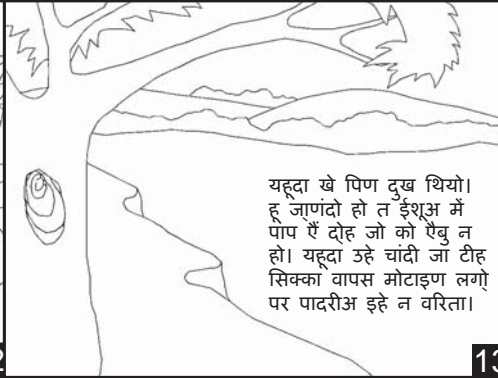 यहूदा खे पिण दुख थियो।
हू जा॒णंदो हो त ईशूअ में
पाप ऐं दो॒ह जो को ऐबु न
हो। यहूदा उहे चांदी जा टीह
सिक्का वापस मोटाइण लगो॒
पर पादरीअ इहे न वरिता।
2
13